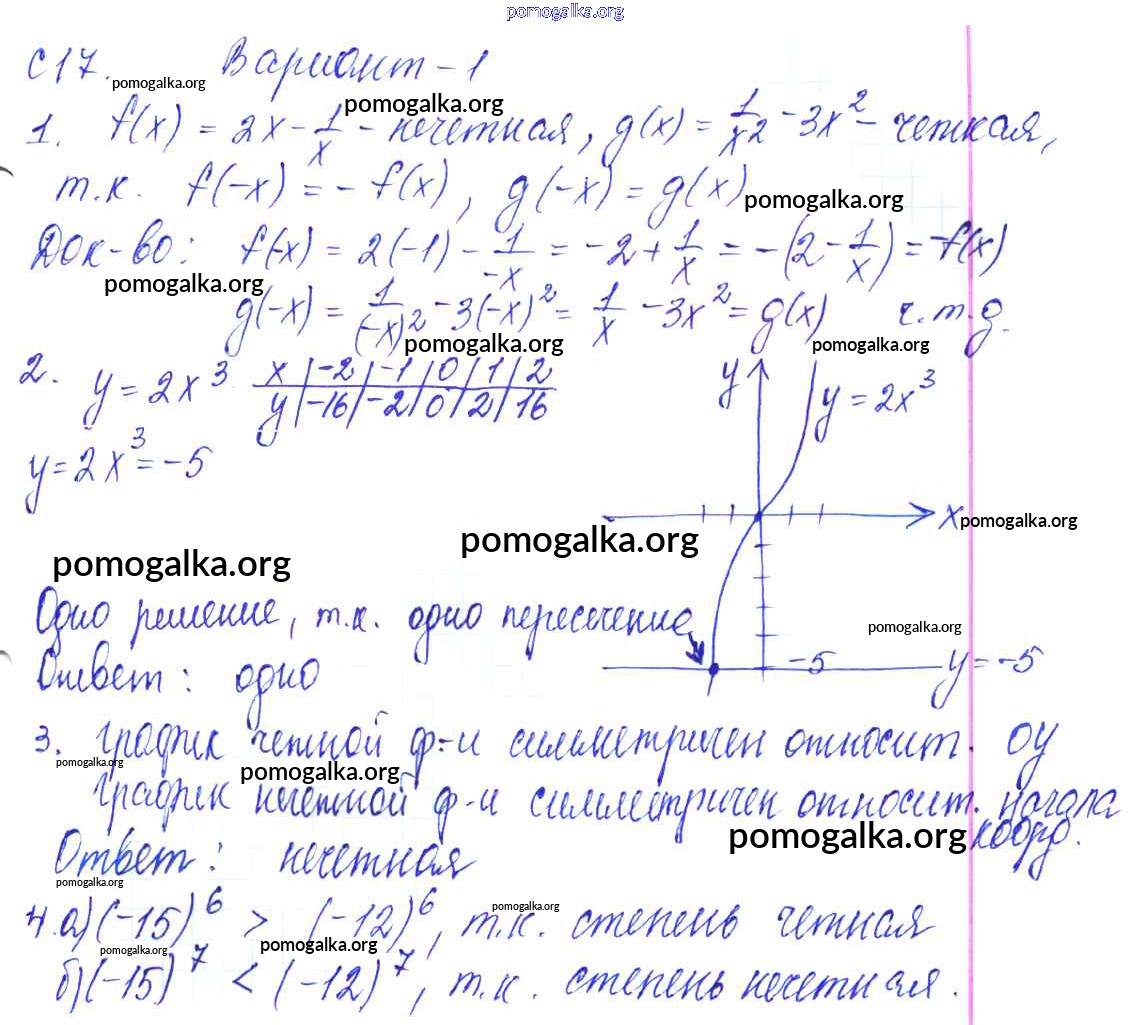 pomogalka.org
С17. Вариант-1
pomogalka.org
pomogalka.org
1. f(x) = 2x - 1/x - нечетная, g(x) = 1/x² - 3x² - четная,
т.к. f(-x) = - f(x), g(-x) = g(x)
pomogalka.org
Док-во: f(-x) = 2(-1) - 1/-x = -2 + 1/x = -(2 - 1/x) = -f(x)
pomogalka.org
g(-x) = 1/(-x)² - 3(-x)² = 1/x - 3x² = g(x) ч.т.д.
pomogalka.org
pomogalka.org
2. y = 2x³
x | -2 | -1 | 0 | 1 | 2
y | -16 | -2 | 0 | 2 | 16
y
y = 2x³
y = 2x³ = -5
x
pomogalka.org
pomogalka.org
pomogalka.org
Одно решение, т.к. одно пересечение
pomogalka.org
-5
y = -5
Ответ: одно
3. График четной ф-и симметричен относит. OY
pomogalka.org
pomogalka.org
График нечетной ф-и симметричен относит. начала
коорд.
pomogalka.org
Ответ: нечетная
pomogalka.org
4. а) (-15)⁶ > (-12)⁶, т.к. степень четная
pomogalka.org
pomogalka.org
pomogalka.org
б) (-15)⁷ < (-12)⁷, т.к. степень нечетная.